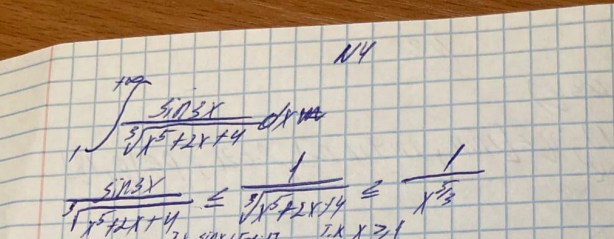 N4
∫₁^{+∞} sin3x / ∛(x⁵+2x+4) dx
sin3x / ∛(x⁵+2x+4) ≤ 1 / ∛(x⁵+2x+4) ≤ 1 / x^{5/3}
т.к. x ≥ 1